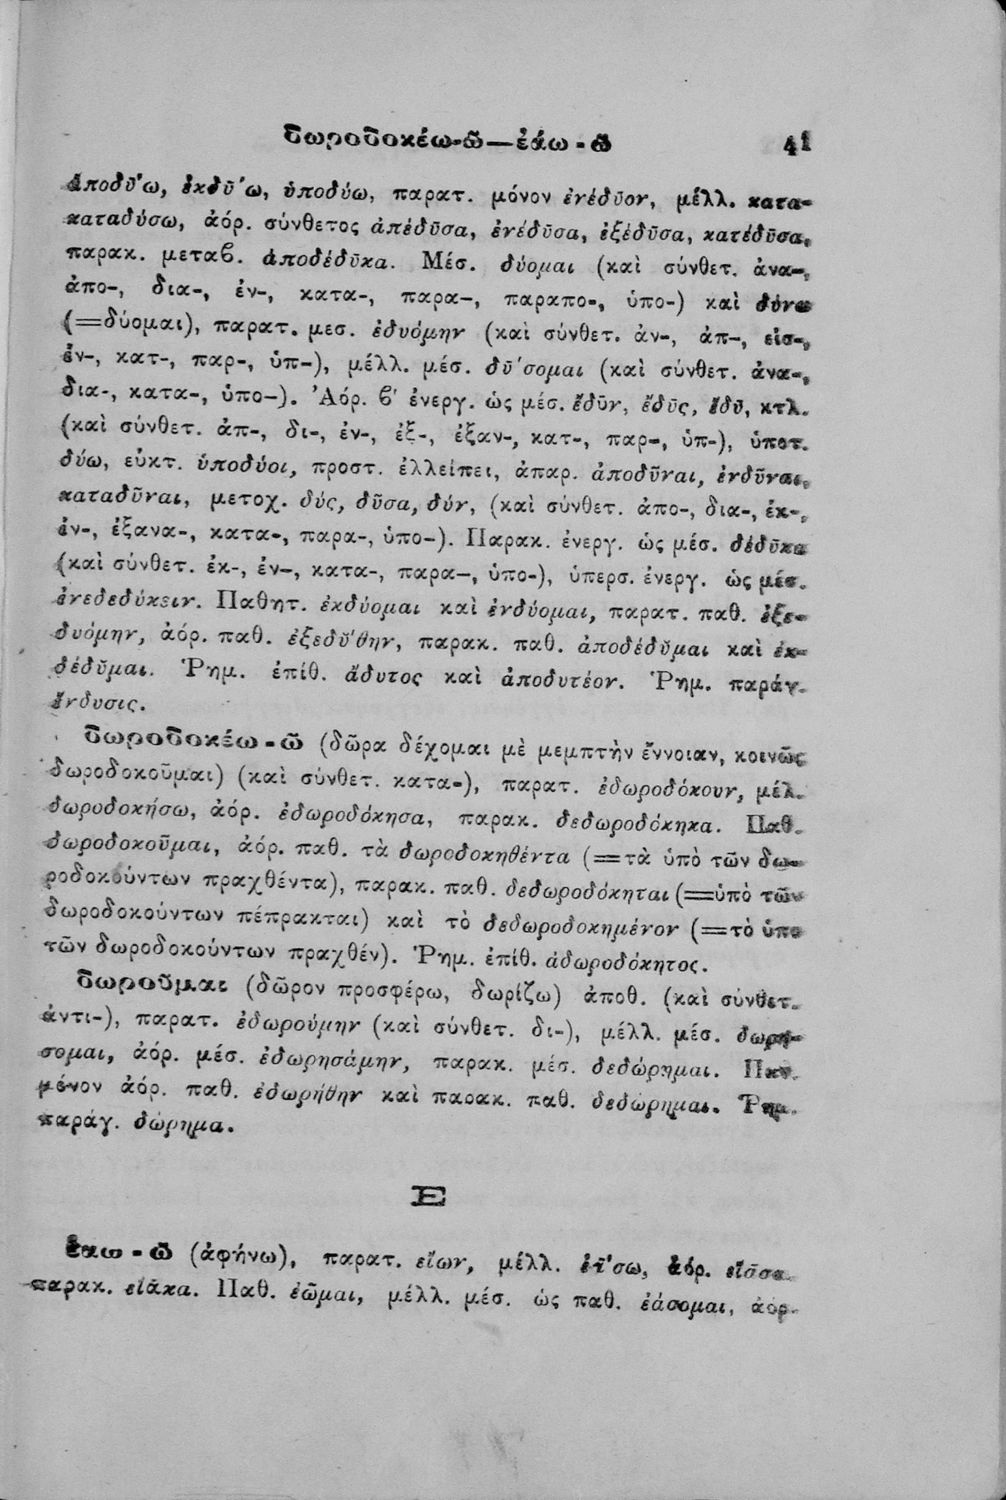 δωροδοκέω-ῶ—ἐάω-ῶ 41
ἀποδῡ́ω, ἐκδῡ́ω, ὑποδύω, παρατ. μόνον ἐνέδῡον, μέλλ. κατα-
καταδύσω, ἀόρ. σύνθετος ἀπέδῡσα, ἐνέδῡσα, ἐξέδῡσα, κατέδῡσα,
παρακ. μεταβ. ἀποδέδῡκα. Μέσ. δύομαι (καὶ σύνθετ. ἀνα-,
ἀπο-, δια-, ἐν-, κατα-, παρα-, παραπο-, ὑπο-) καὶ δύνω
(=δύομαι), παρατ. μεσ. ἐδυόμην (καὶ σύνθετ. ἀν-, ἀπ-, εἰσ-,
ἐν-, κατ-, παρ-, ὑπ-), μέλλ. μέσ. δῡ́σομαι (καὶ σύνθετ. ἀνα-,
δια-, κατα-, ὑπο-). Ἀόρ. β' ἐνεργ. ὡς μέσ. ἔδῡν, ἔδῡς, ἔδῡ, κτλ.
(καὶ σύνθετ. ἀπ-, δι-, ἐν-, ἐξ-, ἐξαν-, κατ-, παρ-, ὑπ-), ὑποτ.
δύω, εὐκτ. ὑποδύοι, προστ. ἐλλείπει, ἀπαρ. ἀποδῦναι, ἐνδῦναι,
καταδῦναι, μετοχ. δύς, δῦσα, δύν, (καὶ σύνθετ. ἀπο-, δια-, ἐκ-,
ἐν-, ἐξανα-, κατα-, παρα-, ὑπο-). Παρακ. ἐνεργ. ὡς μέσ. δέδῡκα
(καὶ σύνθετ. ἐκ-, ἐν-, κατα-, παρα-, ὑπο-), ὑπερσ. ἐνεργ. ὡς μέσ.
ἐνεδεδύκειν. Παθητ. ἐκδύομαι καὶ ἐνδύομαι, παρατ. παθ. ἐξε-
δυόμην, ἀόρ. παθ. ἐξεδῠ́θην, παρακ. παθ. ἀποδέδῠμαι καὶ ἐκ-
δέδῠμαι. Ῥημ. ἐπίθ. ἄδυτος καὶ ἀποδυτέον. Ῥημ. παράγ.
ἔνδυσις.
δωροδοκέω-ῶ (δῶρα δέχομαι μὲ μεμπτὴν ἔννοιαν, κοινῶς
δωροδοκοῦμαι) (καὶ σύνθετ. κατα-), παρατ. ἐδωροδόκουν, μέλ.
δωροδοκήσω, ἀόρ. ἐδωροδόκησα, παρακ. δεδωροδόκηκα. Παθ.
δωροδοκοῦμαι, ἀόρ. παθ. τὰ δωροδοκηθέντα (=τὰ ὑπὸ τῶν δω-
ροδοκούντων πραχθέντα), παρακ. παθ. δεδωροδόκηται (=ὑπὸ τῶν
δωροδοκούντων πέπρακται) καὶ τὸ δεδωροδοκημένον (=τὸ ὑπο
τῶν δωροδοκούντων πραχθέν). Ῥημ. ἐπίθ. ἀδωροδόκητος.
δωροῦμαι (δῶρον προσφέρω, δωρίζω) ἀποθ. (καὶ σύνθετ.
ἀντι-), παρατ. ἐδωρούμην (καὶ σύνθετ. δι-), μέλλ. μέσ. δωρή-
σομαι, ἀόρ. μέσ. ἐδωρησάμην, παρακ. μέσ. δεδώρημαι. Παθ.
μόνον ἀόρ. παθ. ἐδωρήθην καὶ παρακ. παθ. δεδώρημαι. Ῥημ.
παράγ. δώρημα.
Ε
ἐαω-ῶ (ἀφήνω), παρατ. εἴων, μέλλ. ἐᾱ́σω, ἀόρ. εἴᾱσα
παρακ. εἰᾱκα. Παθ. ἐῶμαι, μέλλ. μέσ. ὡς παθ. ἐάσομαι, ἀορ.